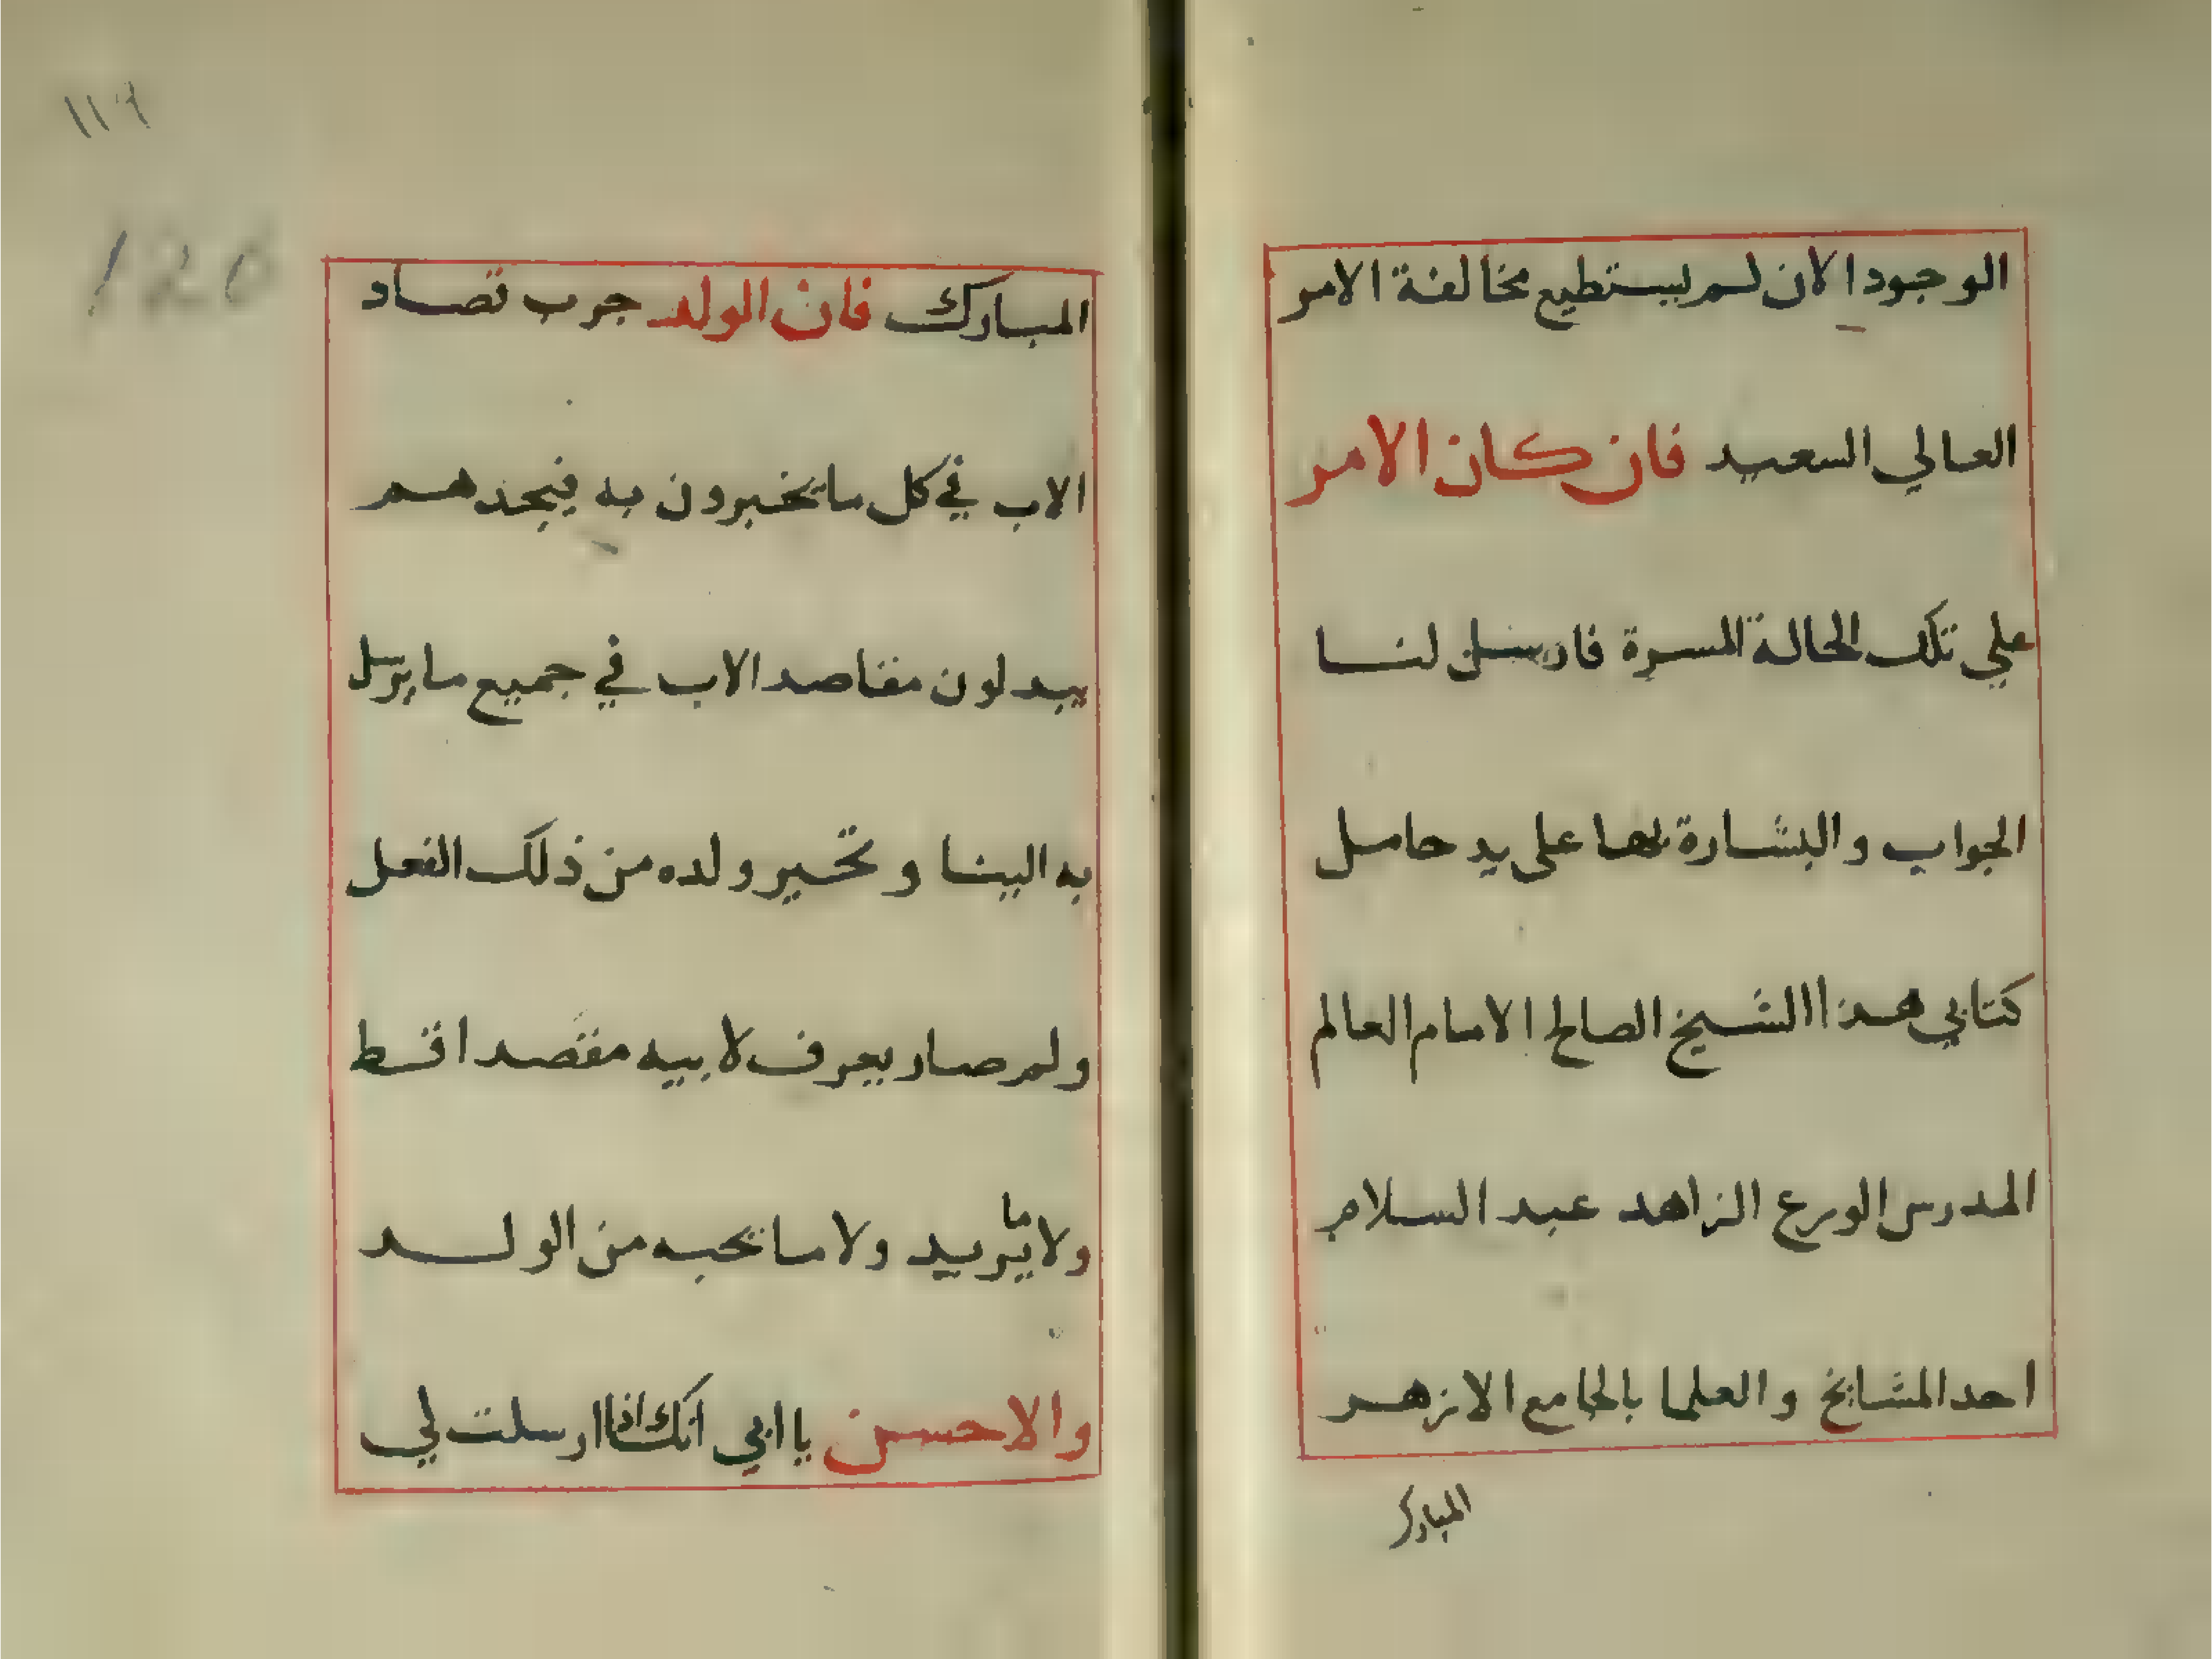 الوجود الان لم يستطيع مخالفة الامر
العالي السعيد فان كان الامر
علي تلك الحالة المسرة فارسل لنا
الجواب والبشارة بها على يد حامل
كتابي هذا الشيخ الصالح الامام العالم
المدرس الورع الزاهد عبد السلام
احد المشايخ والعلما بالجامع الازهر
المبارك
١١٩
120
المبارك فان الولد جرب قصاد
الاب في كل ما يخبرون به فيجدهم
يبدلون مقاصد الاب في جميع ما يرسل
به الينا وتحير ولده من ذلك الفعل
ولم صار يعرف لابيه مقصدا قط
ولا ما يريد ولا ما يحبه من الولد
والاحسن يا ابي انك اذا ارسلت لي